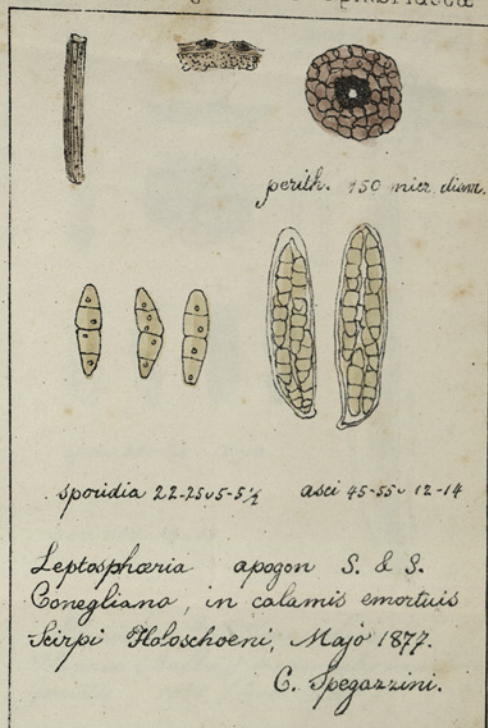 perith. 150 micr. diam.
sporidia 22-25 ∪ 5-5½ asci 45-55 ∪ 12-14
Leptosphæria apogon S. & S.
Conegliano, in calamis emortuis
Scirpi Holoschoeni, Majo 1877.
C. Spegazzini.